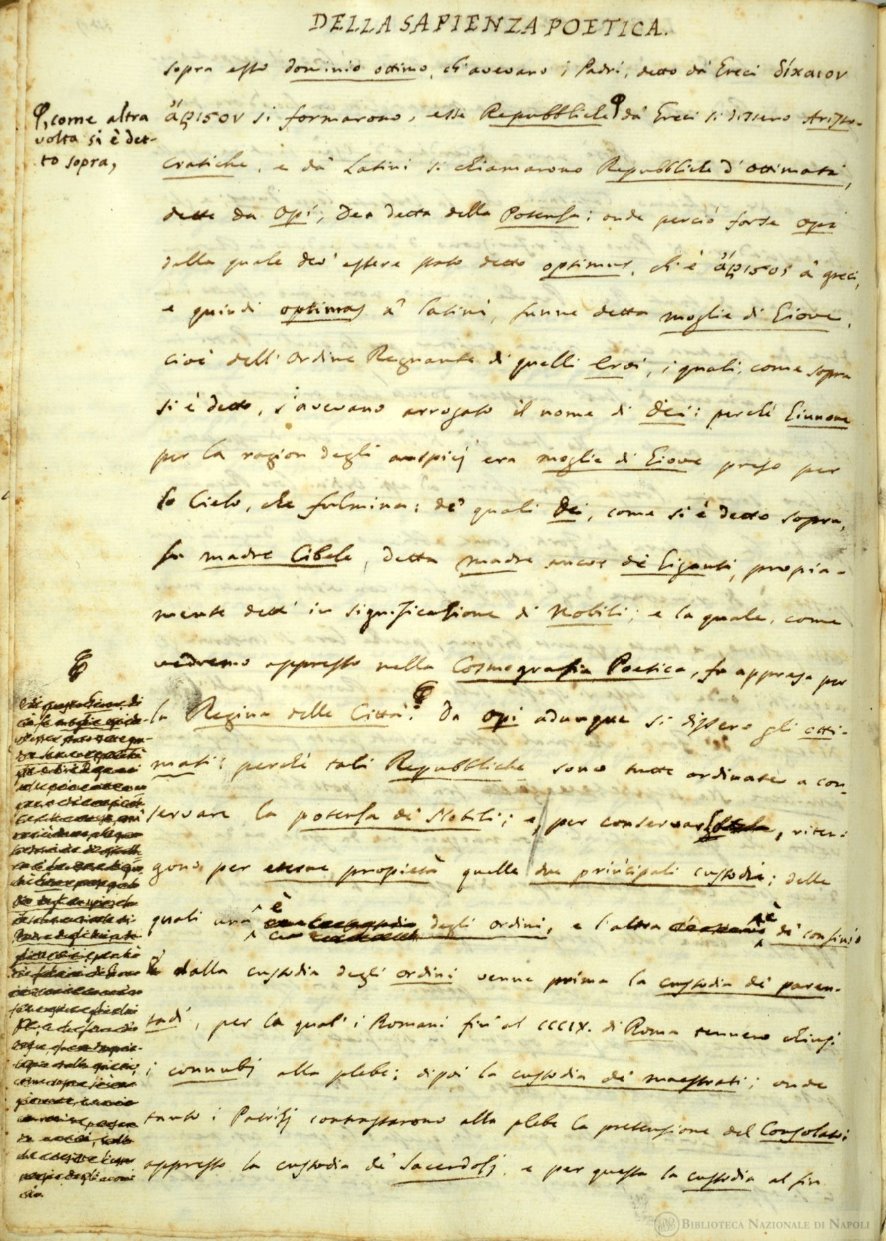 DELLA SAPIENZA POETICA.
sopra esso dominio ottimo, ch'avevano i Padri, detto da' Greci δίκαιον
ἄριϛον si formarono, esse Repubbliche φ da' Greci si dissero Aristo-
cratiche, e da' Latini si chiamarono Repubbliche d'ottimati,
dette da Opi, Dea detta della Potenza: onde perciò forse Opi
dalla quale dev' essere stato detto optimus, ch'è ἄριϛος a' greci,
e quindi optimas a' latini, funne detta moglie di Giove,
cioè dell'Ordine Regnante di quelli Eroi, i quali, come sopra
si è detto, s'avevano arrogato il nome di Dei: perchè Giunone
per la ragion degli auspicj era moglie di Giove preso per
lo Cielo, che fulmina: de' quali Dei, come si è detto sopra,
fu madre Cibele, detta madre ancor de' Giganti, propia-
mente detti in significazione di Nobili; e la quale, come
vedremo appresso nella Cosmografia Poetica, fu appresa per
la Regina delle Città. Da Opi adunque si dissero gli otti-
mati: perchè tali Repubbliche sono tutte ordinate a con-
servare la potenza de' Nobili; e, per conservarla, riten-
gono per eterne propietà quelle due principali custodie; delle
quali una è degli ordini, e l'altra è de' confini:
e dalla custodia degli ordini venne prima la custodia de' paren-
tadi, per la qual' i Romani fin' al CCCIX. di Roma tennero chiusi
i connubj alla plebe; dipoi la custodia de' maestrati; onde
tanto i Patrizj contrastarono alla plebe la pretensione del Consolato;
appresso la custodia de' Sacerdozj e per questa la custodia al fin
φ, come altra
volta si è det-
to sopra,
BIBLIOTECA NAZIONALE DI NAPOLI